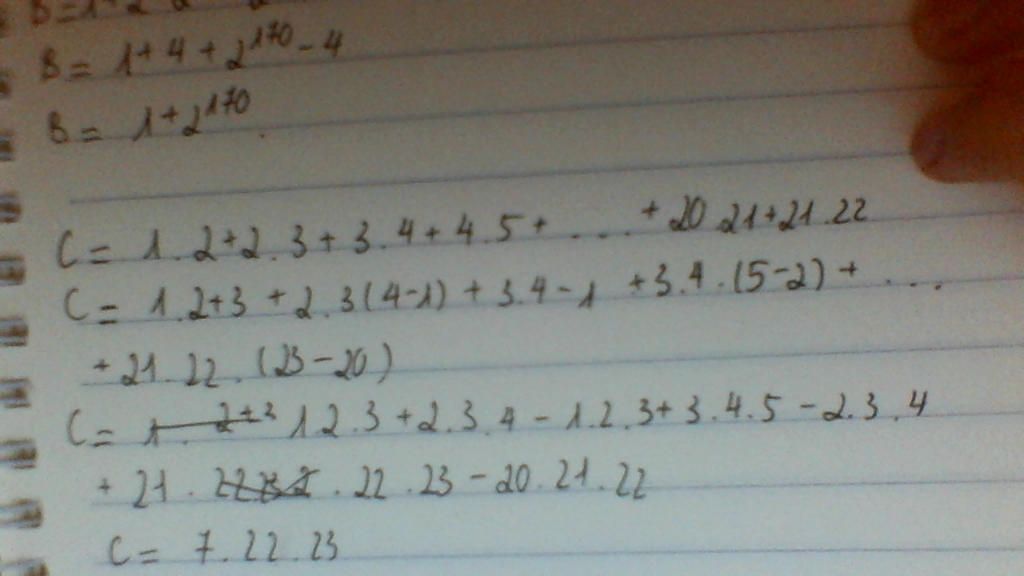 B = 1 + 4 + 2^170 - 4
B = 1 + 2^170.
C = 1.2+2.3+3.4+4.5+....+20.21+21.22
C = 1.2+3 + 2.3(4-1) + 3.4-1 +3.4.(5-2)+....
+21.22.(23-20)
C = 1.2.3+2.3.4-1.2.3+3.4.5-2.3.4
+ 21. .22.23-20.21.22
C = 7.22.23